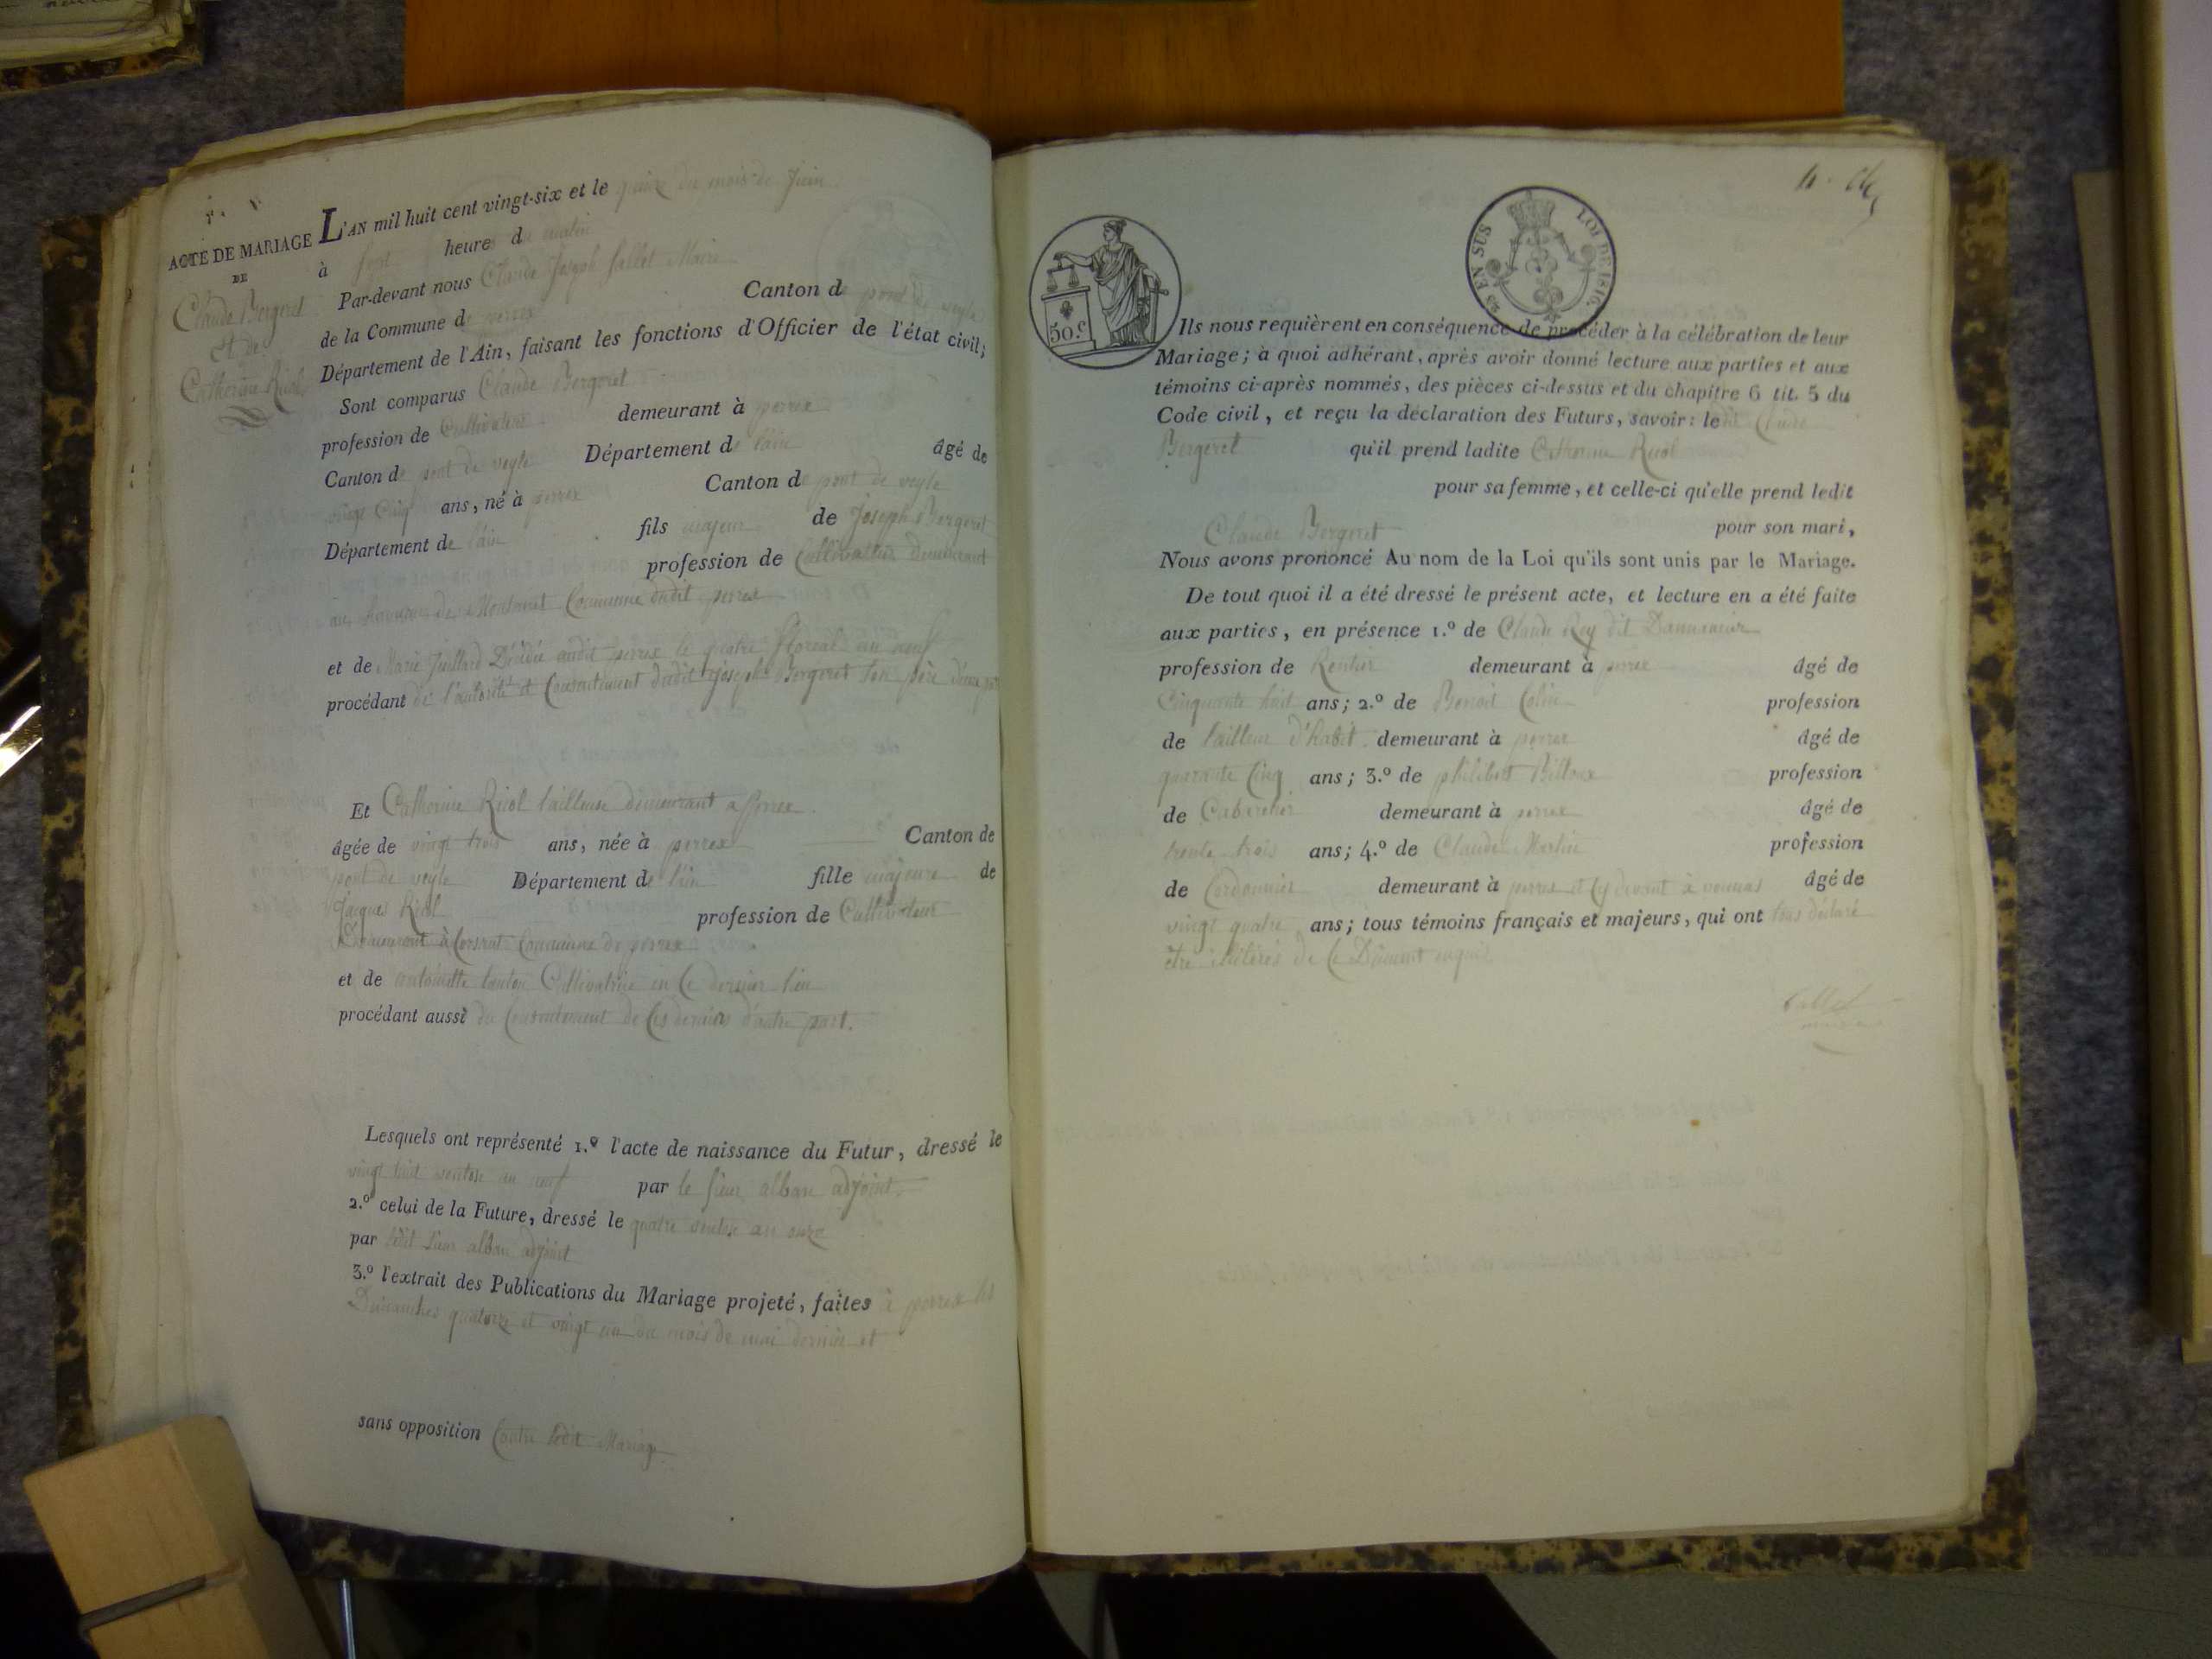 ACTE DE MARIAGE
DE
Claude Bergeret
et de
Catherine Ricol
L'AN mil huit cent vingt-six et le quinze du mois de Juin
à sept heures d matin
Par-devant nous Claude Joseph fallet Maire
de la Commune de perrex Canton de pont de veyle
Département de l'Ain, faisant les fonctions d'Officier de l'état civil;
Sont comparus Claude Bergeret
profession de Cultivateur demeurant à perrex
Canton de pont de veyle Département de l'ain âgé de
vingt Cinq ans, né à perrex Canton de pont de veyle
Département de l'ain fils majeur de Joseph Bergeret
profession de Cultivateur demeurant
au hameau de Montanet Commune dudit perrex
et de Marie Juillard Décédée audit perrex le quatre floréal an neuf
procédant de l'autorité et Consentement dudit Joseph Bergeret son père d'une part
Et Catherine Ricol tailleuse demeurant a perrex
âgée de vingt trois ans, née à perrex Canton de
pont de veyle Département de l'ain fille majeure de
Jacques Ricol profession de Cultivateur
Demeurant à Corsant Commune de perrex
et de antoinette Cultivatrice en Ce dernier lieu
procédant aussi du Consentement de Ces derniers d'autre part.
Lesquels ont représenté 1.º l'acte de naissance du Futur, dressé le
vingt huit ventose an neuf par le sieur alban adjoint.
2.º celui de la Future, dressé le quatre ventose an onze
par ledit sieur alban adjoint
3.º l'extrait des Publications du Mariage projeté, faites à perrex les
Dimanches quatorze et vingt un du mois de mai dernier et
sans opposition Contre ledit Mariage
50 c
EN SUS
LOI DE 1816.
Ils nous requièrent en conséquence de procéder à la célébration de leur
Mariage; à quoi adhérant, après avoir donné lecture aux parties et aux
témoins ci-après nommés, des pièces ci-dessus et du chapitre 6 tit. 5 du
Code civil, et reçu la déclaration des Futurs, savoir: le dit Claude
Bergeret qu'il prend ladite Catherine Ricol
pour sa femme, et celle-ci qu'elle prend ledit
Claude Bergeret pour son mari,
Nous avons prononcé Au nom de la Loi qu'ils sont unis par le Mariage.
De tout quoi il a été dressé le présent acte, et lecture en a été faite
aux parties, en présence 1.º de Claude Rey dit
profession de Rentier demeurant à perrex âgé de
Cinquante huit ans; 2.º de Benoit Colin profession
de tailleur d'habit. demeurant à perrex âgé de
quarante Cinq ans; 3.º de philibert profession
de Cabaretier demeurant à perrex âgé de
trente trois ans; 4.º de Claude Martin profession
de Cordonnier demeurant à perrex et Cy devant à vonnas âgé de
vingt quatre ans; tous témoins français et majeurs, qui ont tous déclaré
être illitérés de Ce Dûment enquis
fallet
maire